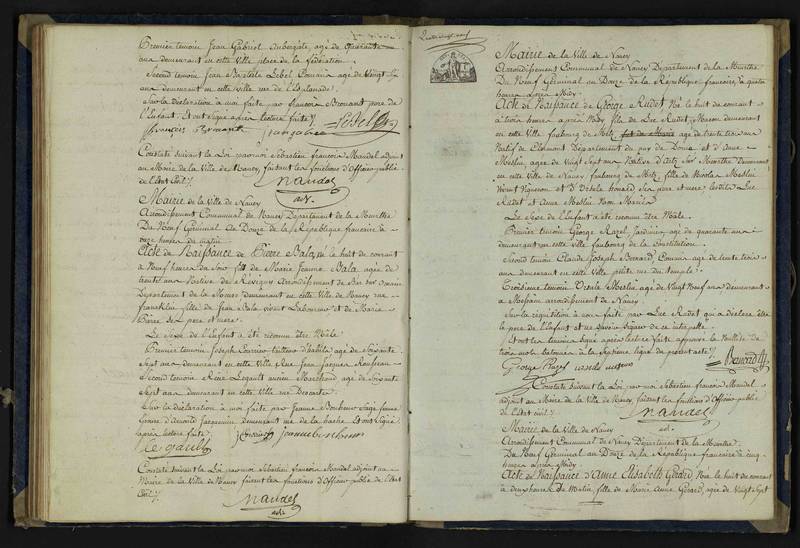 Premier temoin Jean Gabriel Aubergate, agé de quarante
ans demeurant en cette ville place de la fédération.
Second temoin Jean Baptiste Lebel Commis agé de vingt
ans demeurant en cette ville rue de l'Esplanade.
Sur la déclaration à moi faite par françois père de
l'Enfant. Et ont signé après lecture faite
françois jean gabriel Lebel
Constaté suivant la Loi par moi Sébastien françois Mandel adjoint
au Maire de la Ville de Nancy faisant les fonctions d'Officier public
de l'Etat Civil.
Mandel
adj.
Mairie de la Ville de Nancy
Arrondissement Communal de Nancy Departement de la Meurthe
Du Neuf Germinal an Douze de la République française à
onze heures du matin
Acte de Naissance de Pierre Bala, né le huit du courant
à Neuf heures du Soir fils de Marie Jeanne Bala agée de
trente ans Native de Révigny Arrondissement de Bar sur Ornain
Département de la Meuse demeurant en cette Ville de Nancy rue
franklin fille de Jean Bala vivant Laboureur et de Marie
Pierre Ses pere et mere.
Le Sexe de l'Enfant a été reconnu être Mâle.
Premier temoin Joseph Courrier tailleur d'habits agé de Soixante
Sept ans demeurant en cette Ville rue Jean Jacques Rousseau
Second temoin René Legault ancien Marchand agé de Soixante
Sept ans demeurant en cette ville rue Descartes.
Sur la déclaration à moi faite par Jeanne Bonheur Sage femme
demeurant rue de la hache. Et ont Signé
après lecture faite.
Le gault
Constaté Suivant la Loi par moi Sébastien françois Mandel adjoint au
Maire de la Ville de Nancy faisant les fonctions d'Officier public de l'Etat
Civil.
Mandel
adj.
Mairie de la Ville de Nancy
Arrondissement Communal de Nancy Département de la Meurthe
Du Neuf Germinal an Douze de la République française, à quatre
heures après Midy
Acte de Naissance de George Rudot Né le huit du courant
à trois heures après Midy fils de Luc Rudot, Maçon demeurant
en cette ville faubourg de Metz agé de trente trois ans
Natif de Clermont Département du puy de Dome et d'Anne
Meslin, agée de Vingt Sept ans Native d'Art Sur Meurthe Demeurant
en cette Ville de Nancy faubourg de Metz, fille de Nicolas Meslin
vivant Vigneron et d'Ursule Ses pere et mere, lesdits Luc
Rudot et Anne Meslin Non Mariés
Le Sexe de l'Enfant a été reconnu être Mâle.
Premier temoin George Razel Jardinier agé de quarante ans
demeurant en cette Ville faubourg de la Constitution.
Second temoin Claude Joseph Bernard Commis agé de trente trois
ans demeurant en cette Ville petite rue du temple.
Troisieme temoin Ursule Meslin agée de Vingt Neuf ans demeurant
à arrondissement de Nancy.
Sur la réquisition à nous faite par Luc Rudot qui a déclaré être
le pere de l'Enfant et ne Savoir Signer de ce interpellé.
Et ont les temoins Signé après lecture faite approuvé la Nullité de
trois mots batonnés à la Septieme ligne du présent acte.
George Bernard
Constaté Suivant la Loi, par moi Sébastien françois Mandel
adjoint au Maire de la Ville de Nancy, faisant les fonctions d'Officier public
de l'Etat Civil.
Mandel
adj.
Mairie de la Ville de Nancy
Arrondissement Communal de Nancy Département de la Meurthe.
Du Neuf Germinal an Douze de la République française à cinq
heures après Midy
Acte de Naissance d'Anne Elisabeth Gérard Née le huit du courant
à deux heures du Matin, fille de Marie Anne Gérard, agée de Vingt Sept